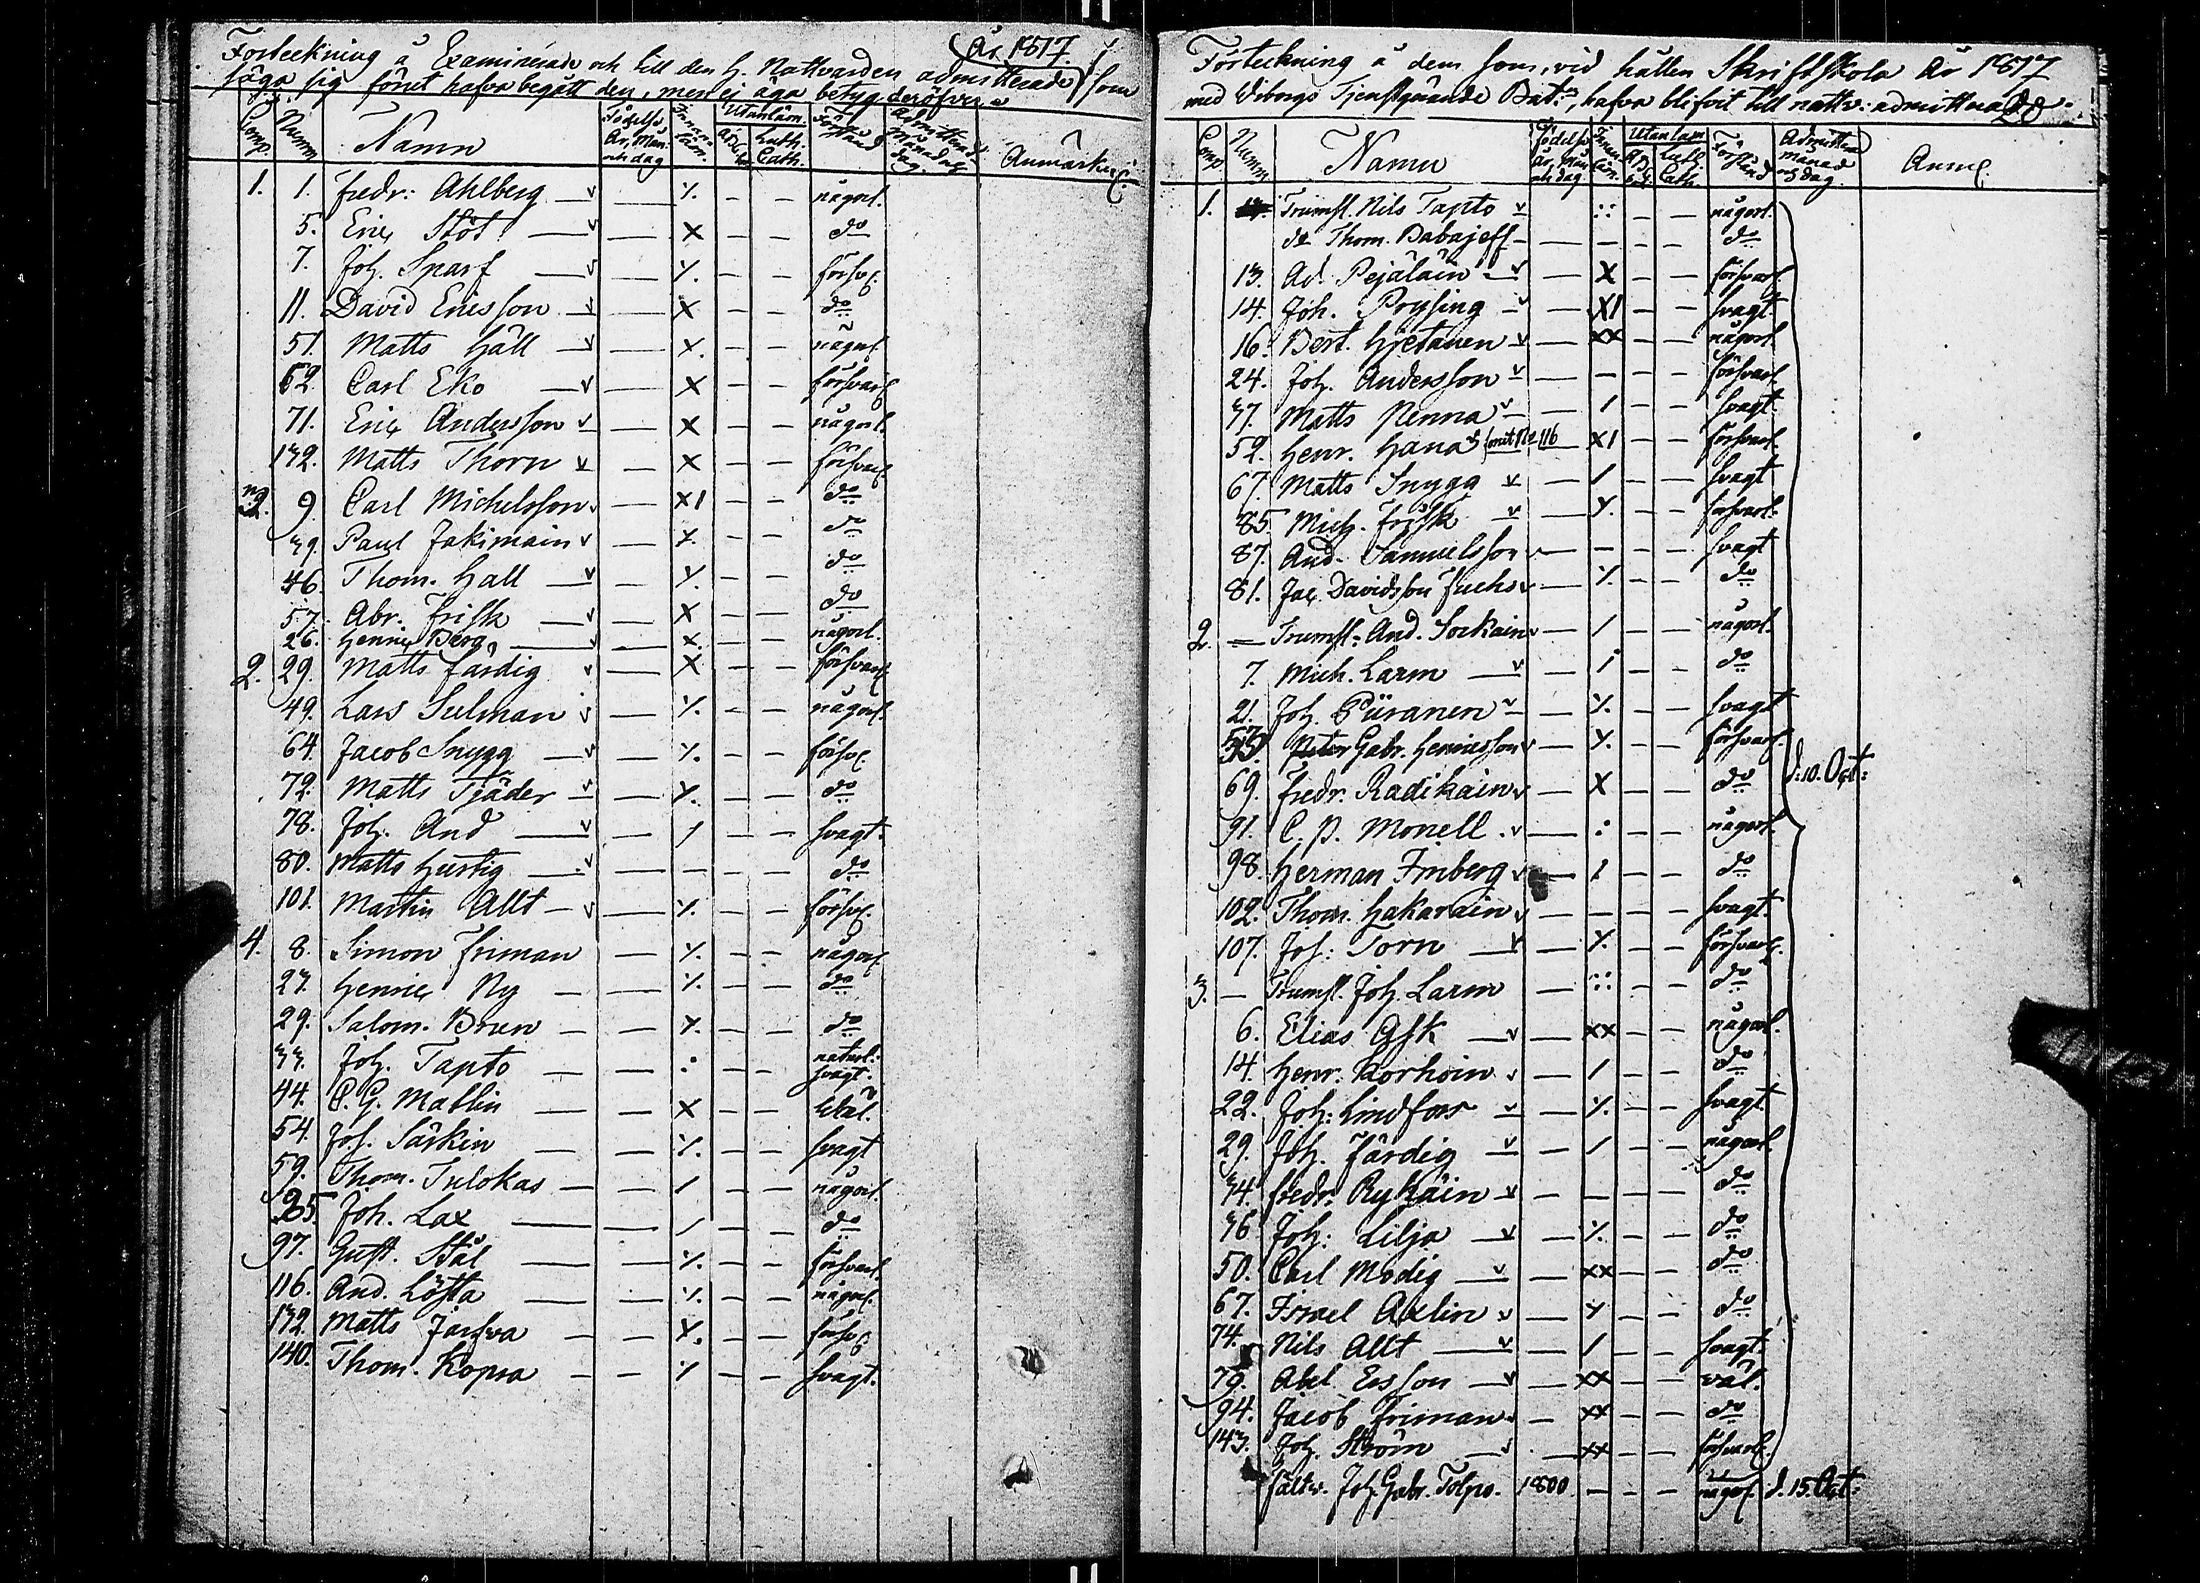 År 1817.
Förteckning å Examinerade och till den H. Nattvarden admitterade som
säga sig förut hafva begått den, men ej äga betyg deröfver
Comp. Numm. Namn Födelse År, Mån. och dag Innan-läsn. Utanläsn. ABC bok Luth. Cath. Förstånd Admitterad Månad och dag. Anmärkn.
1. 1. Fredr: Ahlberg v — ·/. - - någorl.
5. Eric Stöt v — X - - do
7. Joh. Snarf v — ·/. - - försv.
11. David Ericsson v — X - - do
51. Matts Häll v — X - - någorl.
62. Carl Eko v — X - - försvarl.
71. Eric Andersson v — X - - någorl.
132. Matts Thorn v — X - - försvarl.
9. Carl Michelsson v — XI - - do
39. Paul Jakimain v — ·/. - - do
46. Thom. Hall v — ·/. - - do
57. Abr. Frisk v — X - - do
26. Henric Berg v — X - - någorl.
2. 29. Matts Färdig v — X - - försvarl.
49. Lars Sulman v — ·/. - - någorl.
64. Jacob Snygg v — ·/. - - försv.
72. Matts Tjäder v — ·/. - - do
78. Joh. And v — / - - svagt.
80. Matts Hurtig v — - - - do
101. Martin Allt v — ·/. - - försv.
4. 8. Simon Friman — ·/. - - någorl.
23. Henric Ny — ·/. - - do
29. Salom. Brun — ·/. - - do
33. Joh. Tapto — · - - naturl. svagt.
44. C. G. Mallin — X - - Wäl.
54. Joh. Särkin — ·/. - - svagt
59. Thom. Tulokas — / - - någorl.
95. Joh. Lax — / - - do
97. Gust. Stål — ·/. - - försvarl.
116. And. Lösta — ·/. - - någorl.
132. Matts Jarfva — ·/. - - försv.
140. Thom. Kopra — ·/. - - svagt.
Förteckning å dem som, vid hållen Skriftskola År 1817
med Wiborgs Tjenstgörande Bat:n, hafva blifvit till nattv: admitterade.
Comp Numm Namn Födelse år, mån och dag Innan-läsn. Utanläsn ABC bok Luth. Cath. Förstånd Admitterad månad och dag. Anm.
1. Trumsl. Nils Tapto v :: - - någorl.
do Thom. Babajeff — - - - do
13. Ad. Pejäläin v — X - - försvarl.
14. Joh. Prysing v — XI - - svagt.
16. Bert. Hjetanen v — XX - - någorl.
24. Joh. Andersson v — - - - försvarl.
37. Matts Penna v — / - - svagt.
52. Henr. Hana (mit No 116 — XI - - försvarl.
67. Matts Snygg v — / - - svagt
85. Mich. Frisk v — ·/. - - försvarl.
87. And. Samuelsson v — - - - svagt
81. Jac. Davidsson Fuchs v — ·/. - - do
2. — Trumsl. And. Sorkain v — / - - någorl.
7. Mich. Larm v — / - - do
21. Joh. Püranen v — ·/. - - svagt
Gabr. Henricsson v — ·/. - - försvarl.
d: 10. Oct:
69. Fredr. Radikain v — X - - do
91. C. P. Monell v — : - - någorl.
98. Herman Imberg v — / - - do
102. Thom. Hakarain v — - - - svagt.
107. Joh: Torn v — ·/. - - försvarl.
3. — Trumsl. Joh. Larm — :: - - do
6. Elias Ask v — XX - - någorl.
14. Henr. Korhoin v — / - - do
22. Joh: Lindfors v — ·/. - - svagt
29. Joh. Färdig v — / - - någorl.
34. Fredr. Rykäin v — - - - do
36. Joh: Lilja v — ·/. - - do
50. Carl Modig v — XX - - do
67. Israel Axlin v — ·/. - - do
74. Nils Allt v — / - - svagt.
79. Abel Ersson v — XX - - väl.
94. Jacob Friman v — XX - - do
143. Joh. Ström v — XX - - försvarl.
Fältw. Joh. Gabr. Tolpo. 1800 — - - någorl. d. 15. Oct: